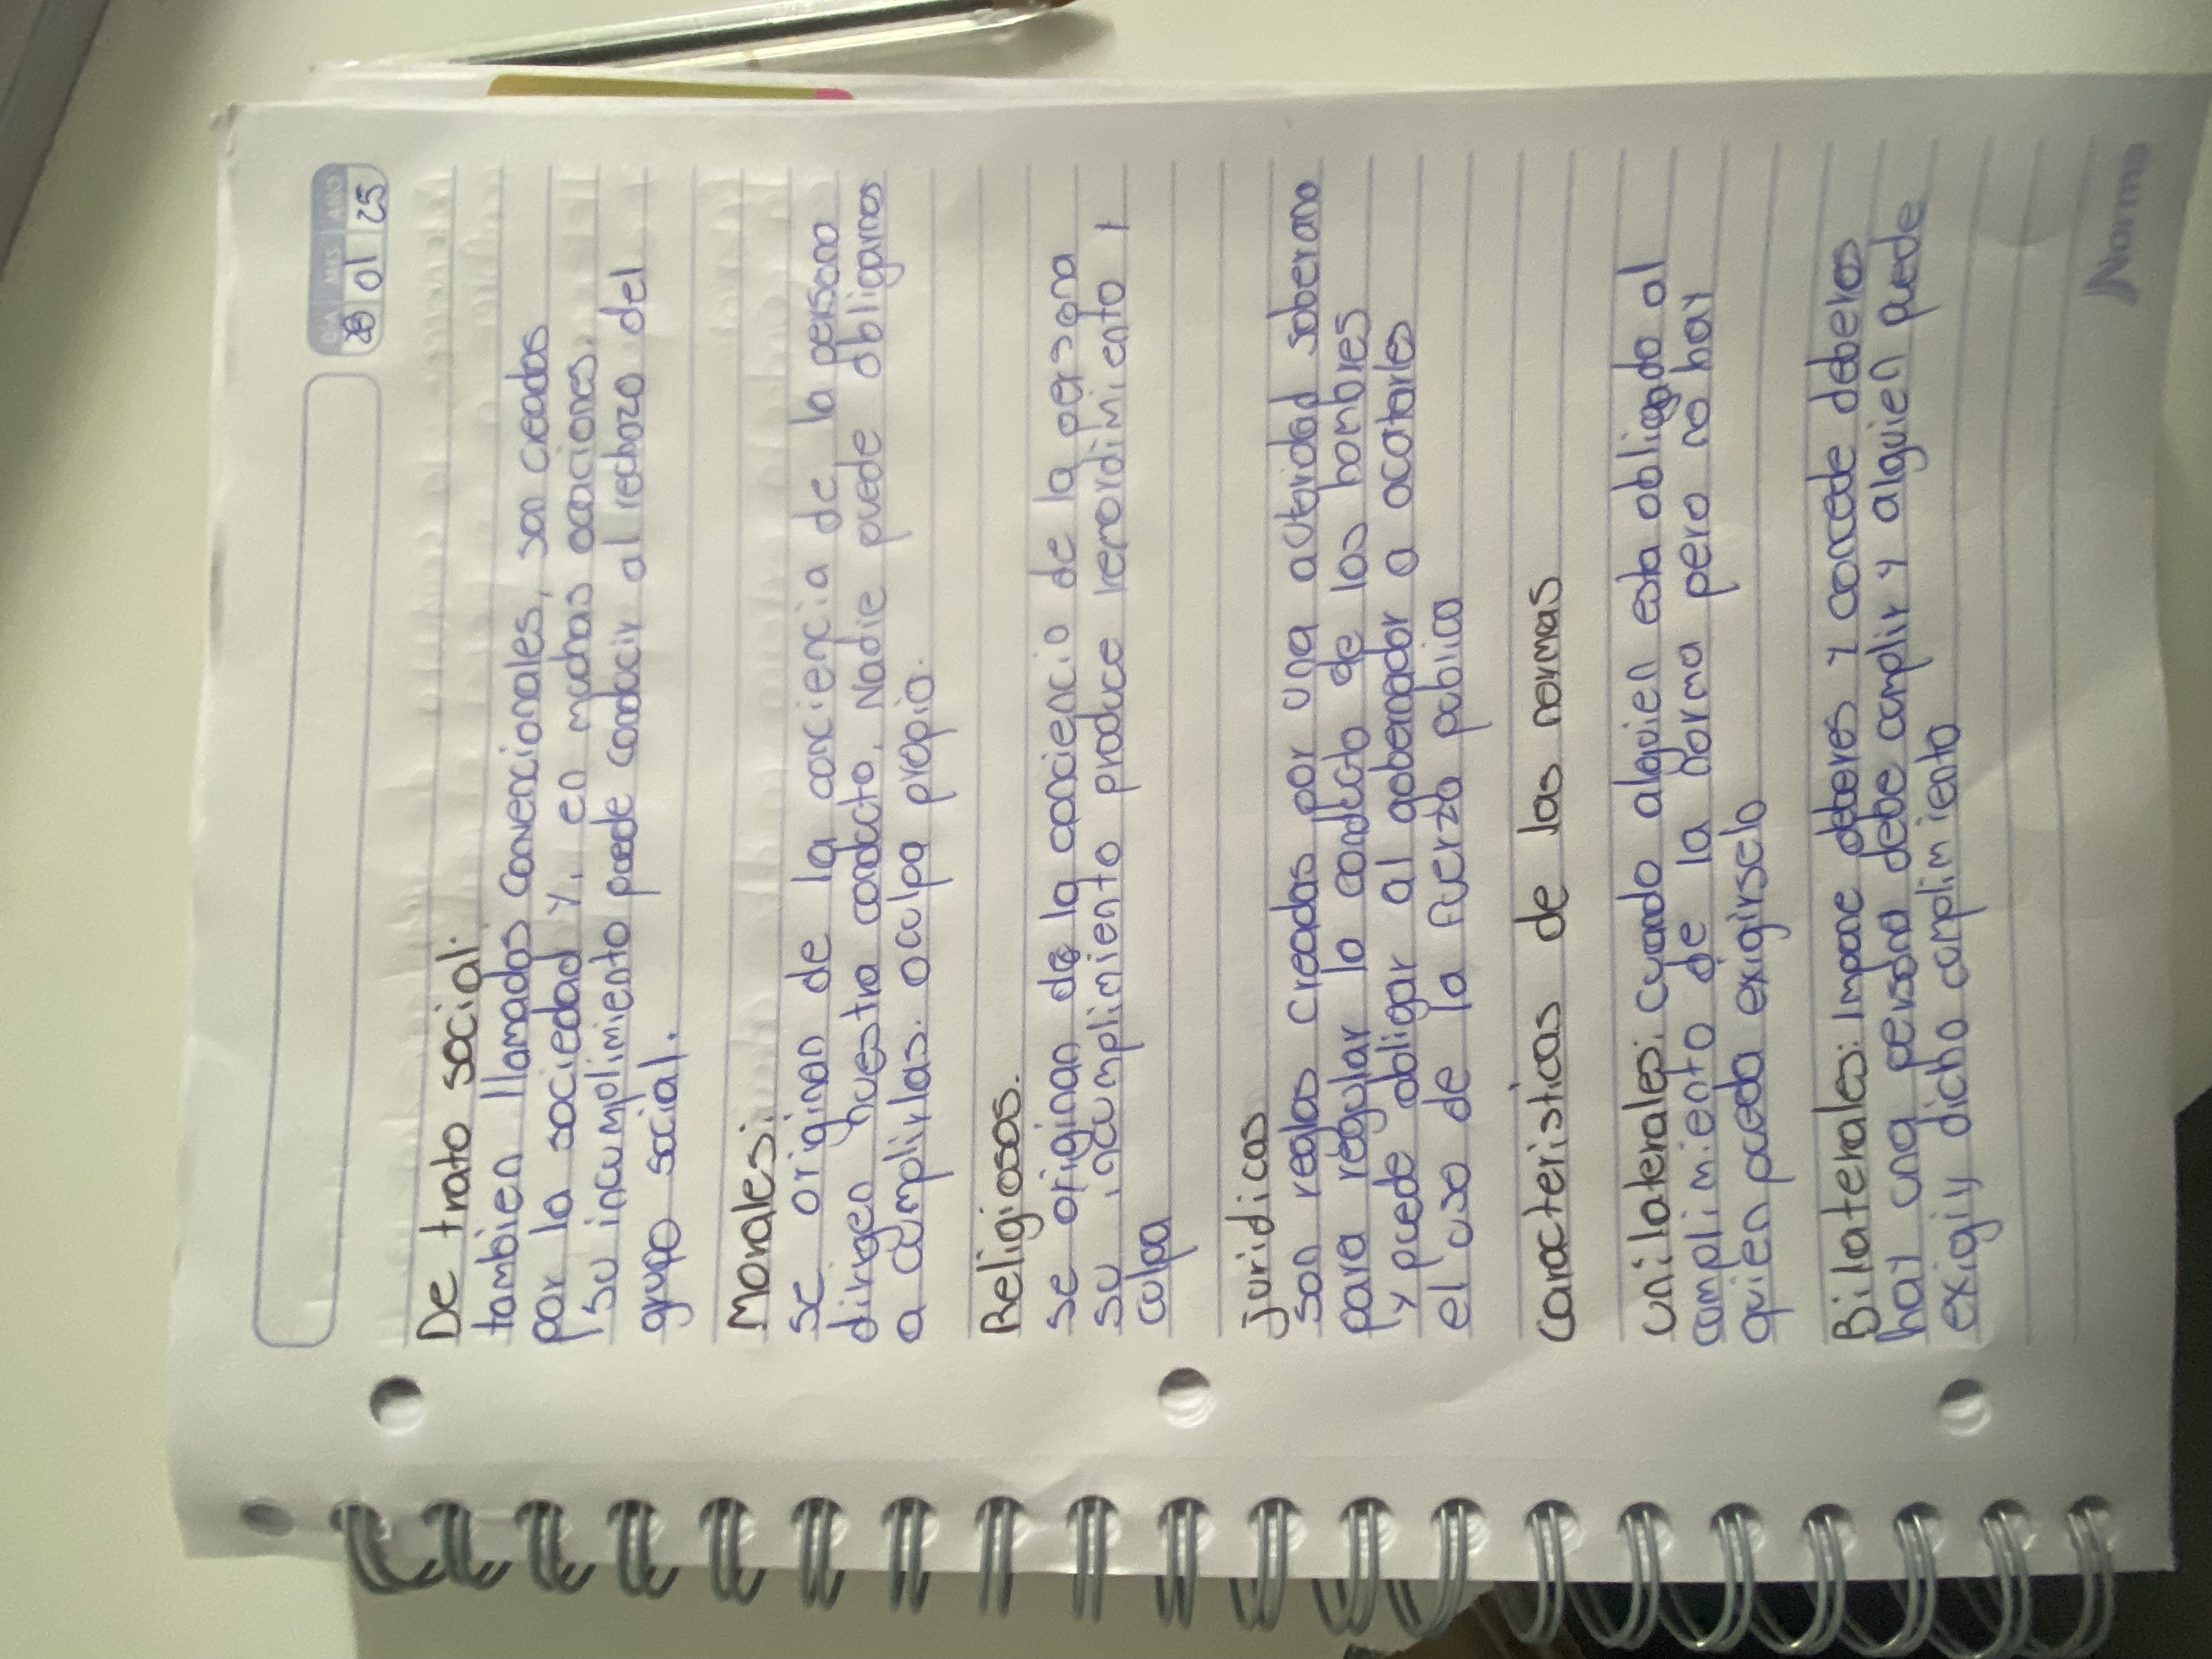 DIA MES AÑO
28 01 25
De trato social:
tambien llamados convencionales, son creados
por la sociedad y, en muchas ocaciones,
su incumplimiento puede conducir al rechazo del
grupo social.
Morales:
se originan de la conciencia de la persona
dirigen nuestra conducta, Nadie puede obligarnos
a cumplirlas. o culpa propia.
Religiosas.
se originan de la conciencia de la persona
su incumplimiento produce remordimiento
culpa
juridicas
son reglas creadas por una autoridad soberana
para regular la conducta de los hombres
y puede obligar al gobernador a acatarles
el uso de la fuerza publica
caracteristicas de las normas
unilaterales: cuando alguien esta obligado al
cumplimiento de la norma pero no hay
quien pueda exigirselo
Bilaterales: Impone deberes y concede deberes
hay una persona debe cumplir y alguien puede
exigir dicho cumplimiento
Norma